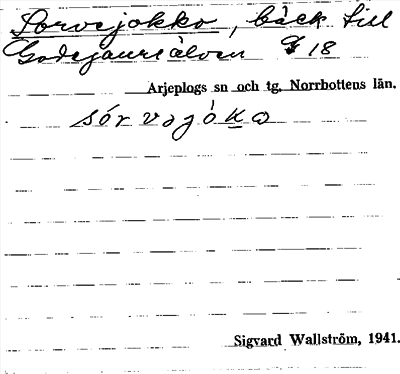 Sorvejokko, bäck till
Godejaureälven F 18
Arjeplogs sn och tg, Norrbottens län.
sórvəjόk̲ɷ
Sigvard Wallström, 1941.